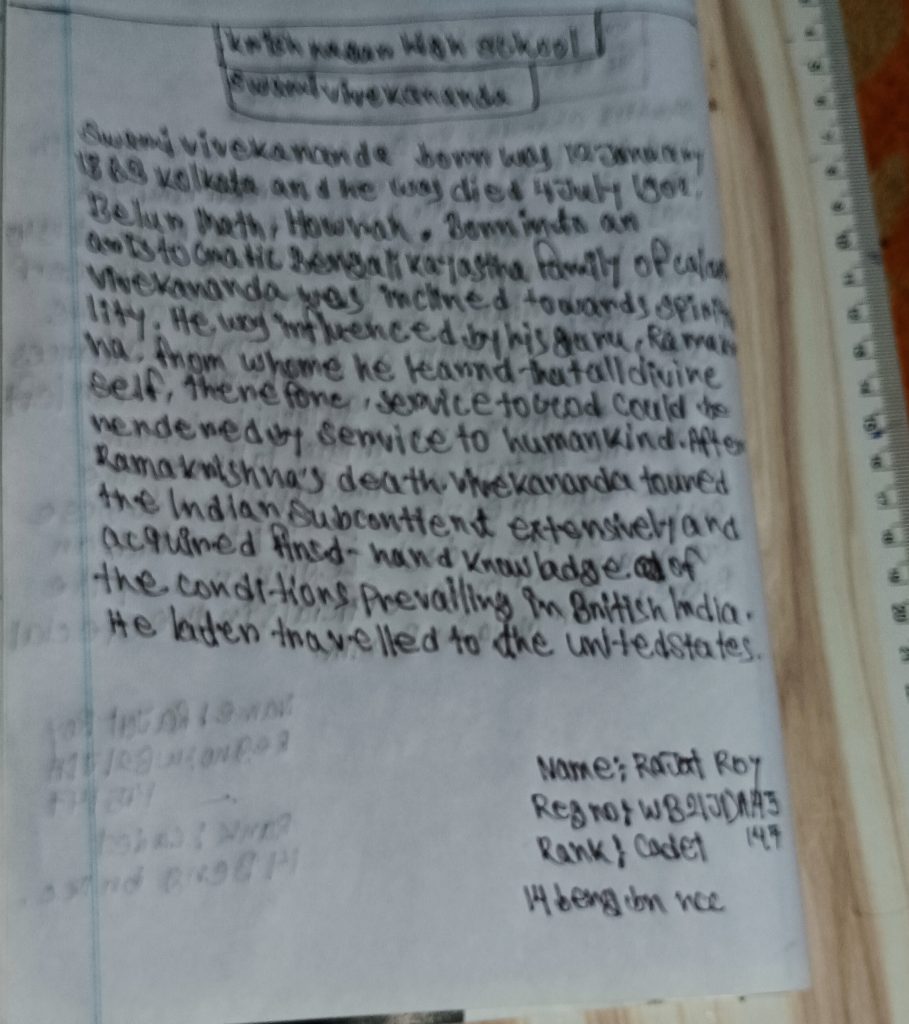 High school
Swami vivekananda
Swami vivekananda born was 12 January
1863 Kolkata and he was died 4 July
Belun Math, Hownah. Born into an
Bengali kayastha family of
Vivekananda was inclined towards
lity. He was influenced by his guru,
na. from whome he leannd that all divine
self, thenefone, service to Good could be
nendened by senvice to humankind. After
Ramaknishna's death. Vivekananda touned
the Indian Subcontient extensively and
acquined finsd-hand knowladge of
the conditions prevailing in Bnitish India.
He laten travelled to the United States.
Name: Rajat Roy
Reg no: WB21JDA43
147
Rank: Cadet
14 beng bn ncc